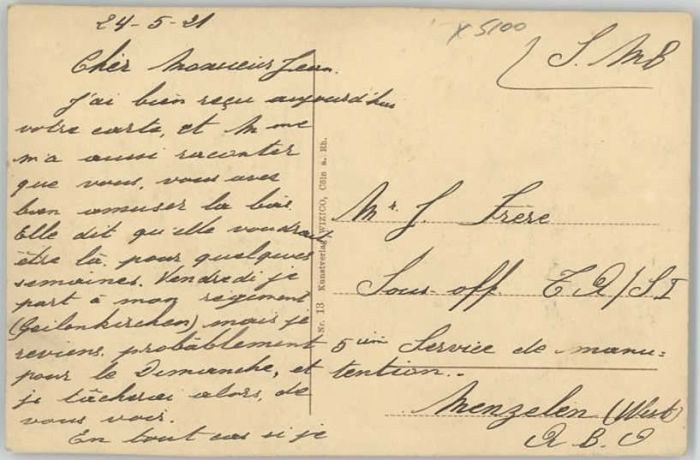 24-5-21
Cher Monsieur Jean.
J'ai bien reçu aujourd'hui
votre carte, et Mme
m'a aussi raconter
que vous, vous aves
bien amuser la bas.
Elle dit qu'elle voudrait
être là pour quelques
semaines. Vendredi je
part à mon regiment
(Geilenkirchen) mais je
reviens probablement
pour le Dimanche, et
je tâcherai alors, de
vous voir.
En tout cas si je
Nr. 13 Kunstverlag WIZICO, Cöln a. Rh.
X 5100
S. M8
Mr J. Frère
Sous-off T.R/S I
5ieme Service de manu=
tention..
Menzelen (West)
A B O